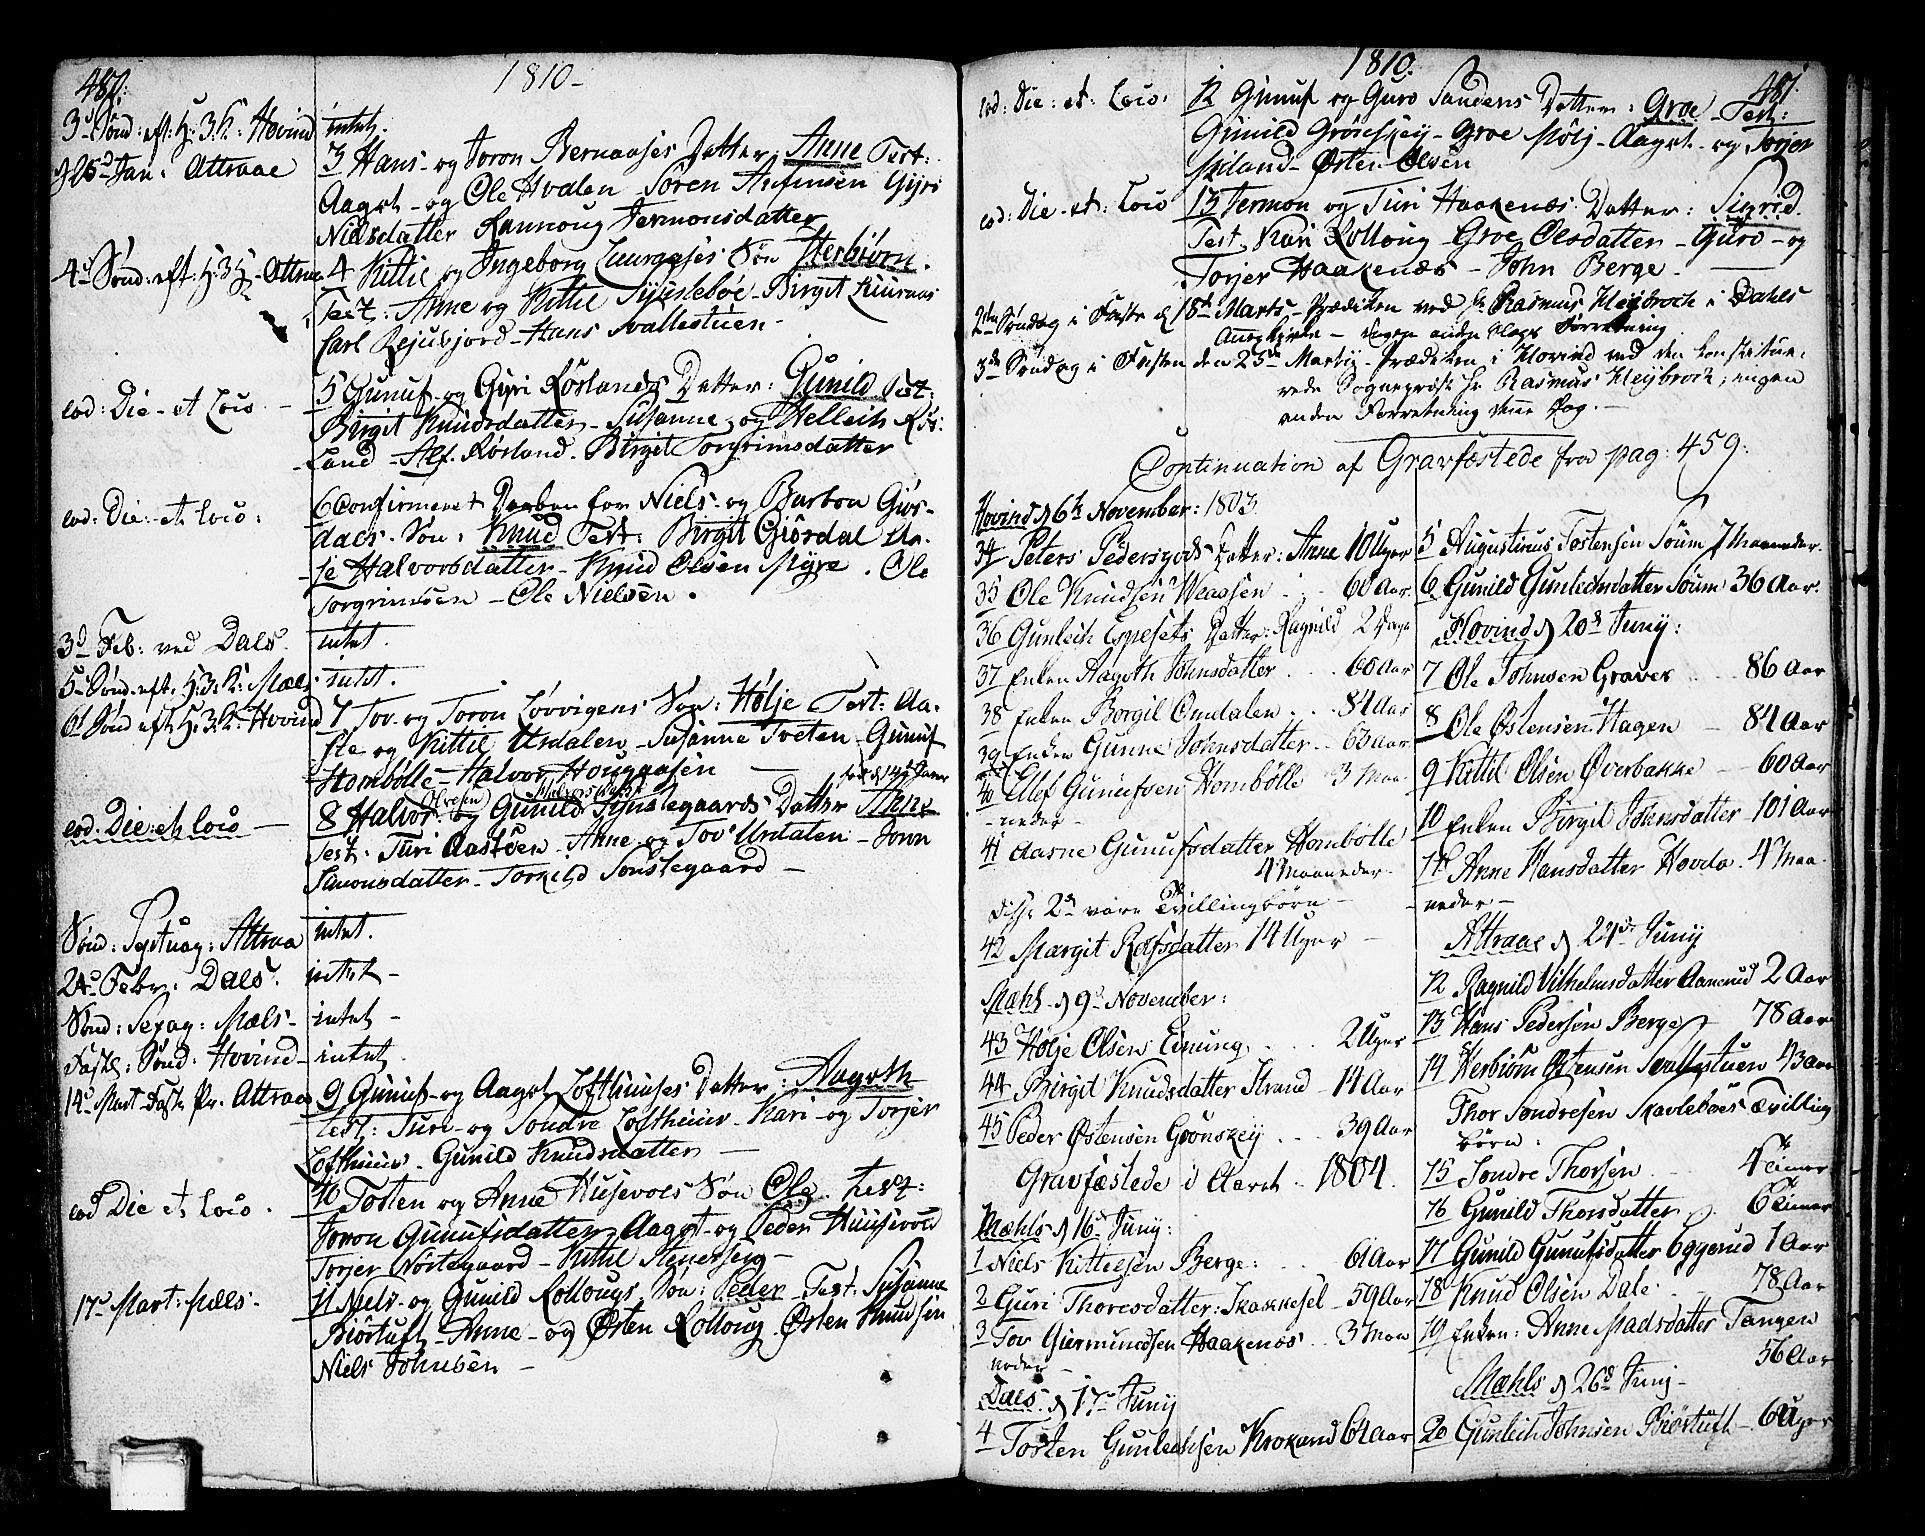 480.
1810-
3d Sønd: eft: H: 3 K: Hovind
intet.
d 25d Jan: Attraae
3 Hans- og Joron Bernaases Datter: Anne Test:
Aagot- og Ole Hvalen- Søren Anfinsen Gyri
Nielsdatter Rannoug Jermonsdatter
4d Sønd: eft: H: 3 K- Attraae
4 Kittil og Ingeborg Luuraases Søn Herbiörn.
Test: Anne og Kittil Birgit Luuraas
Carl Hans Svallestuen-
eod: Die- et Loco-
5 Gunuf- og Gyri Röslands Datter: Gunild Test:
Birgit Knudsdatter- Susanne- og Helleik Rös:
Land- Alf. Rösland- Birgit Torgrimsdatter
eod: Die:- et Loco:
6 Confirmeret Daaben for Niels- og Barbro Giös-
dals- Søn: Knud Test: Birgit Giösdal Aa-
se Halvorsdatter- Knud Olsen Myre. Ole
Torgrimsen- Ole Nielsen.
3d Feb: ved Dals.
intet.
5te Sønd- eft: H: 3: K: Mæls
intet.
6te Sønd eft: H: 3 K- Hovind
7 Tov- og Joron Løvvigens Søn: Hølje Test: Aa-
ste og Kittil Usdalen- Susanne Tveten- Gunuf
Hombölle- Halvor Hougaasen
eod: Die: et Loco-
8 Halvor og Gunild Synstegaards Datter Anne
Test: Turi Aastöen- Anne og Tov Urdalen- Jonn
Simonsdatter- Torkild Sønstegaard-
Sønd: Septuag: Attraa
intet.
24d Febr: Dals.
intet-
Sønd: Sexag: Mæls-
intet-
Faste: Sønd: Hovind-
intet.
14d Mart- Faste Pr. Attraae
9 Gunuf- og Aagot Lofthuuses Datter: Aagoth
Test: Turi- og Sondre Lofthuus- Kari- og Torjer
Lofthuus- Gunild Knudsdatter-
eod Die et Loco.
10 Tosten og Anne Husevols Søn Ole. Test:
Joron Gunufsdatter Aagot- og Peder Huusevold
Torjer Kittil
17d Mart: Mæls-
11 Niels- og Gunild Rollougs Søn: Peder- Test: Susanne
Biörtuft- Anne- og Østen Rolloug- Østen Knudsen
Niels Johnsen-
1810.
481.
eod: Die: et: Loco:
12 Gunuf og Guro Sandens Datter: Groe- Test:
Gunild Grönskey- Groe Aagot- og Torjer
Østen Olsen
eod: Die- et: Loco
13 Jermon og Turi Haakenæs: Datter: Sigrid.
Test, Kari Rolloug- Groe Olsdatter- Guro- og
Torjer Haakenæs- John Berge-
2den Søndag i Faste d 18de Marts- Prædiken ved Hr: Rasmus Heybroch i Dahls
Annexkirke- Ingen anden Slags Forretning
3die Søndag i Fasten den 25de Martii- Prædiken i Hovind ved den konstitue-
rede Sognepræst Hr Rasmus Heybroch; ingen
anden Forretning denne Dag.-
Continuation af Gravfæstede fra pag: 459:
Hovind d 6te November: 1803.
34 Peters Pedersgods Datter: Anne 10 Uger
35 Ole Knudsen Waasen. 60 Aar.
36 Gunleich Espesets Datter: Ragnild 2 Dage
37 Enken Aagoth Johnsdatter... 60 Aar
38 Enken Borgil Omdalen... 84 Aar
39 Enken Gunne Johnsdatter.. 63 Aar
40 Ellef Gunufsen Hombölle 3 Maa-
-neder-
41 Aasne Gunufsdatter Hombölle
4 Maaneder-
disse 2de vare Tvillingbörn-
42 Margit Rolfsdatter 14 Uger-
Mæhl- d 9d November:
43 Hølje Olsen Einung.... 2 Uger
44 Birgit Knudsdatter Strand- 14 Aar
45 Peder Østensen Grönskey... 39 Aar
Gravfæstede i Aaret- 1804.
Mæhls d 16d Juny:
1 Niels Kittilsen Berge:... 61 Aar
2 Guri Thoresdatter: Skakkesel- 59 Aar
3 Tov Giermundsen Haakenæs.. 3 Maa
neder-
Dals. d 17d Juny
4 Tosten Gunleichsen Krokand 61 Aar
5 Augustinus Tostensen Soum 7 Maaneder.
6 Gunild Gunleichsdatter Soum 36 Aar.
Hovind d 20d Juny:
7 Ole Johnsen Graver.... 86 Aar
8 Ole Østensen Hagen- 84 Aar
9 Kittil Olsen Øverbakke- 60 Aar
10 Enken Birgit Johnsdatter 101 Aar
11 Anne Hansdatter Hovda. 4 Maa-
-neder-
Attraae d 24d Juny
12 Ragnild Vilhelmsdatter Aamund 2 Aar
13 Hans Pedersen Berge 78 Aar
14 Herbiörn Østensen Svallestuen 43 Aar
Thor Sondresen Skavleböes Tvilling
börn:
15 Sondre Thorsen- 4 Timer
16 Gunild Thorsdatter. 6 Timer
17 Gunild Gunufsdatter Eggerud 1 Aar
18 Knud Olsen Dale. 78 Aar
19 Enken: Anne Madsdatter Tangen
56 Aar
Mæhls d 26d Juny-
20 Gunleich Johnsen Biörtuft- 6 Uger